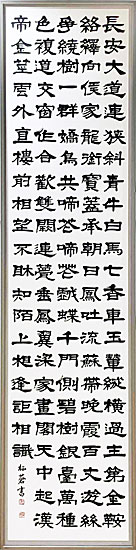 長安大道連狹斜青牛白馬七香車玉輦縱橫過主第金鞭
絡繹向侯家龍銜寶蓋承朝日鳳吐流蘇帶晚霞百丈遊絲
爭繞樹一群嬌鳥共啼花啼花戲蝶千門側碧樹銀臺萬種
色複道交窗作合歡雙闕連甍垂鳳翼梁家畫閣天中起漢
帝金莖雲外直樓前相望不相知陌上相逢詎相識